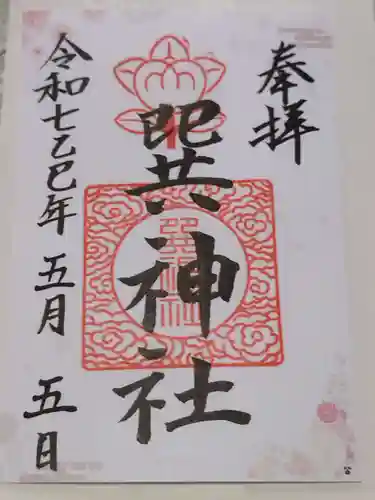 奉拝
巽神社
令和七乙巳年 五月 五日